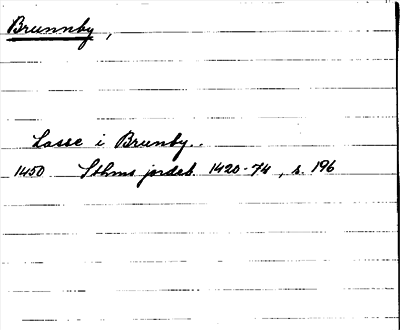 Brunnby,
Lasse i Brunby..
1450 Sthms jordeb. 1420-74, s. 196